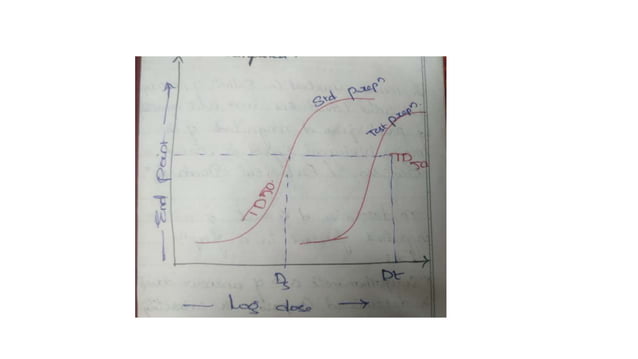 Std prepⁿ
Test prepⁿ.
End Point
TD50
TD50.
Ds
Dt
Log dose